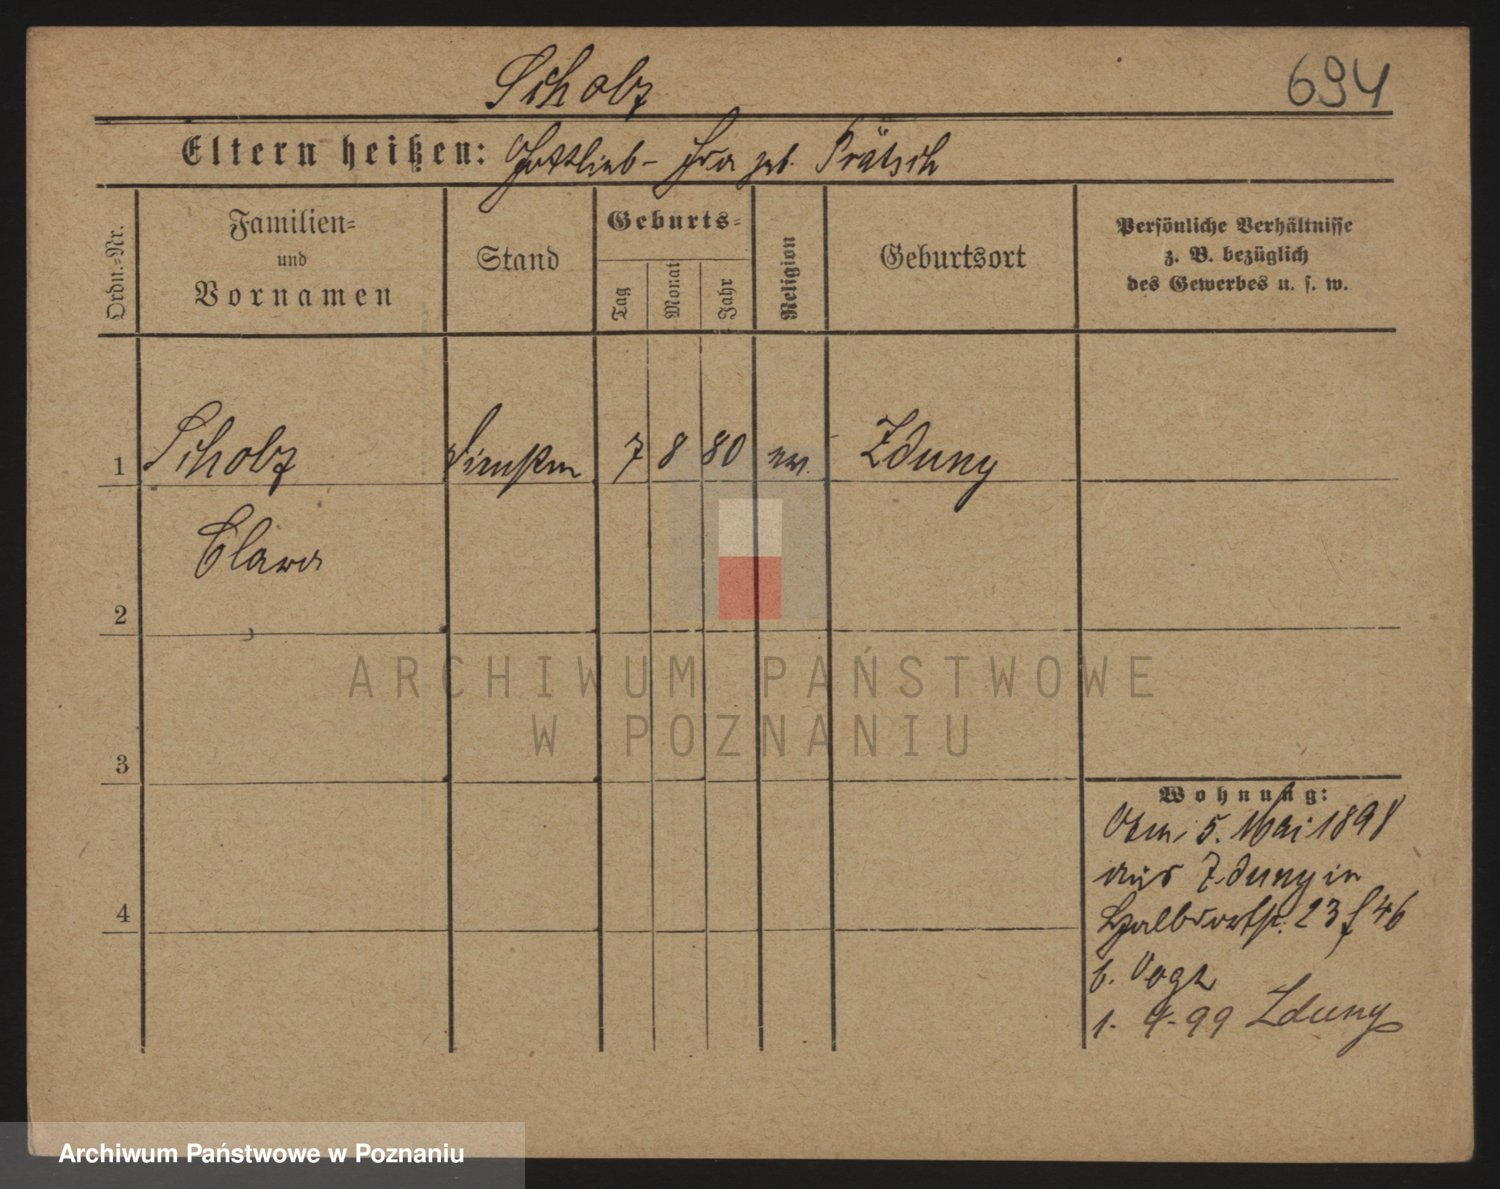 Scholz
694
Eltern heißen: Gottlieb - geb. Prätsch
Ordn.-Nr.
Familien-
und
Vornamen
Stand
Geburts-
Tag
Monat
Jahr
Religion
Geburtsort
Persönliche Verhältnisse
z. B. bezüglich
des Gewerbes u. s. w.
1 Scholz 7 8 80 ev. Zduny
Clara
2
ARCHIWUM PAŃSTWOWE
W POZNANIU
3
Wohnung:
5. Mai 1898
aus Zduny in
Halbdorfstr. 23 f 46
b. Vogt
4
1. 4. 99 Zduny
Archiwum Państwowe w Poznaniu